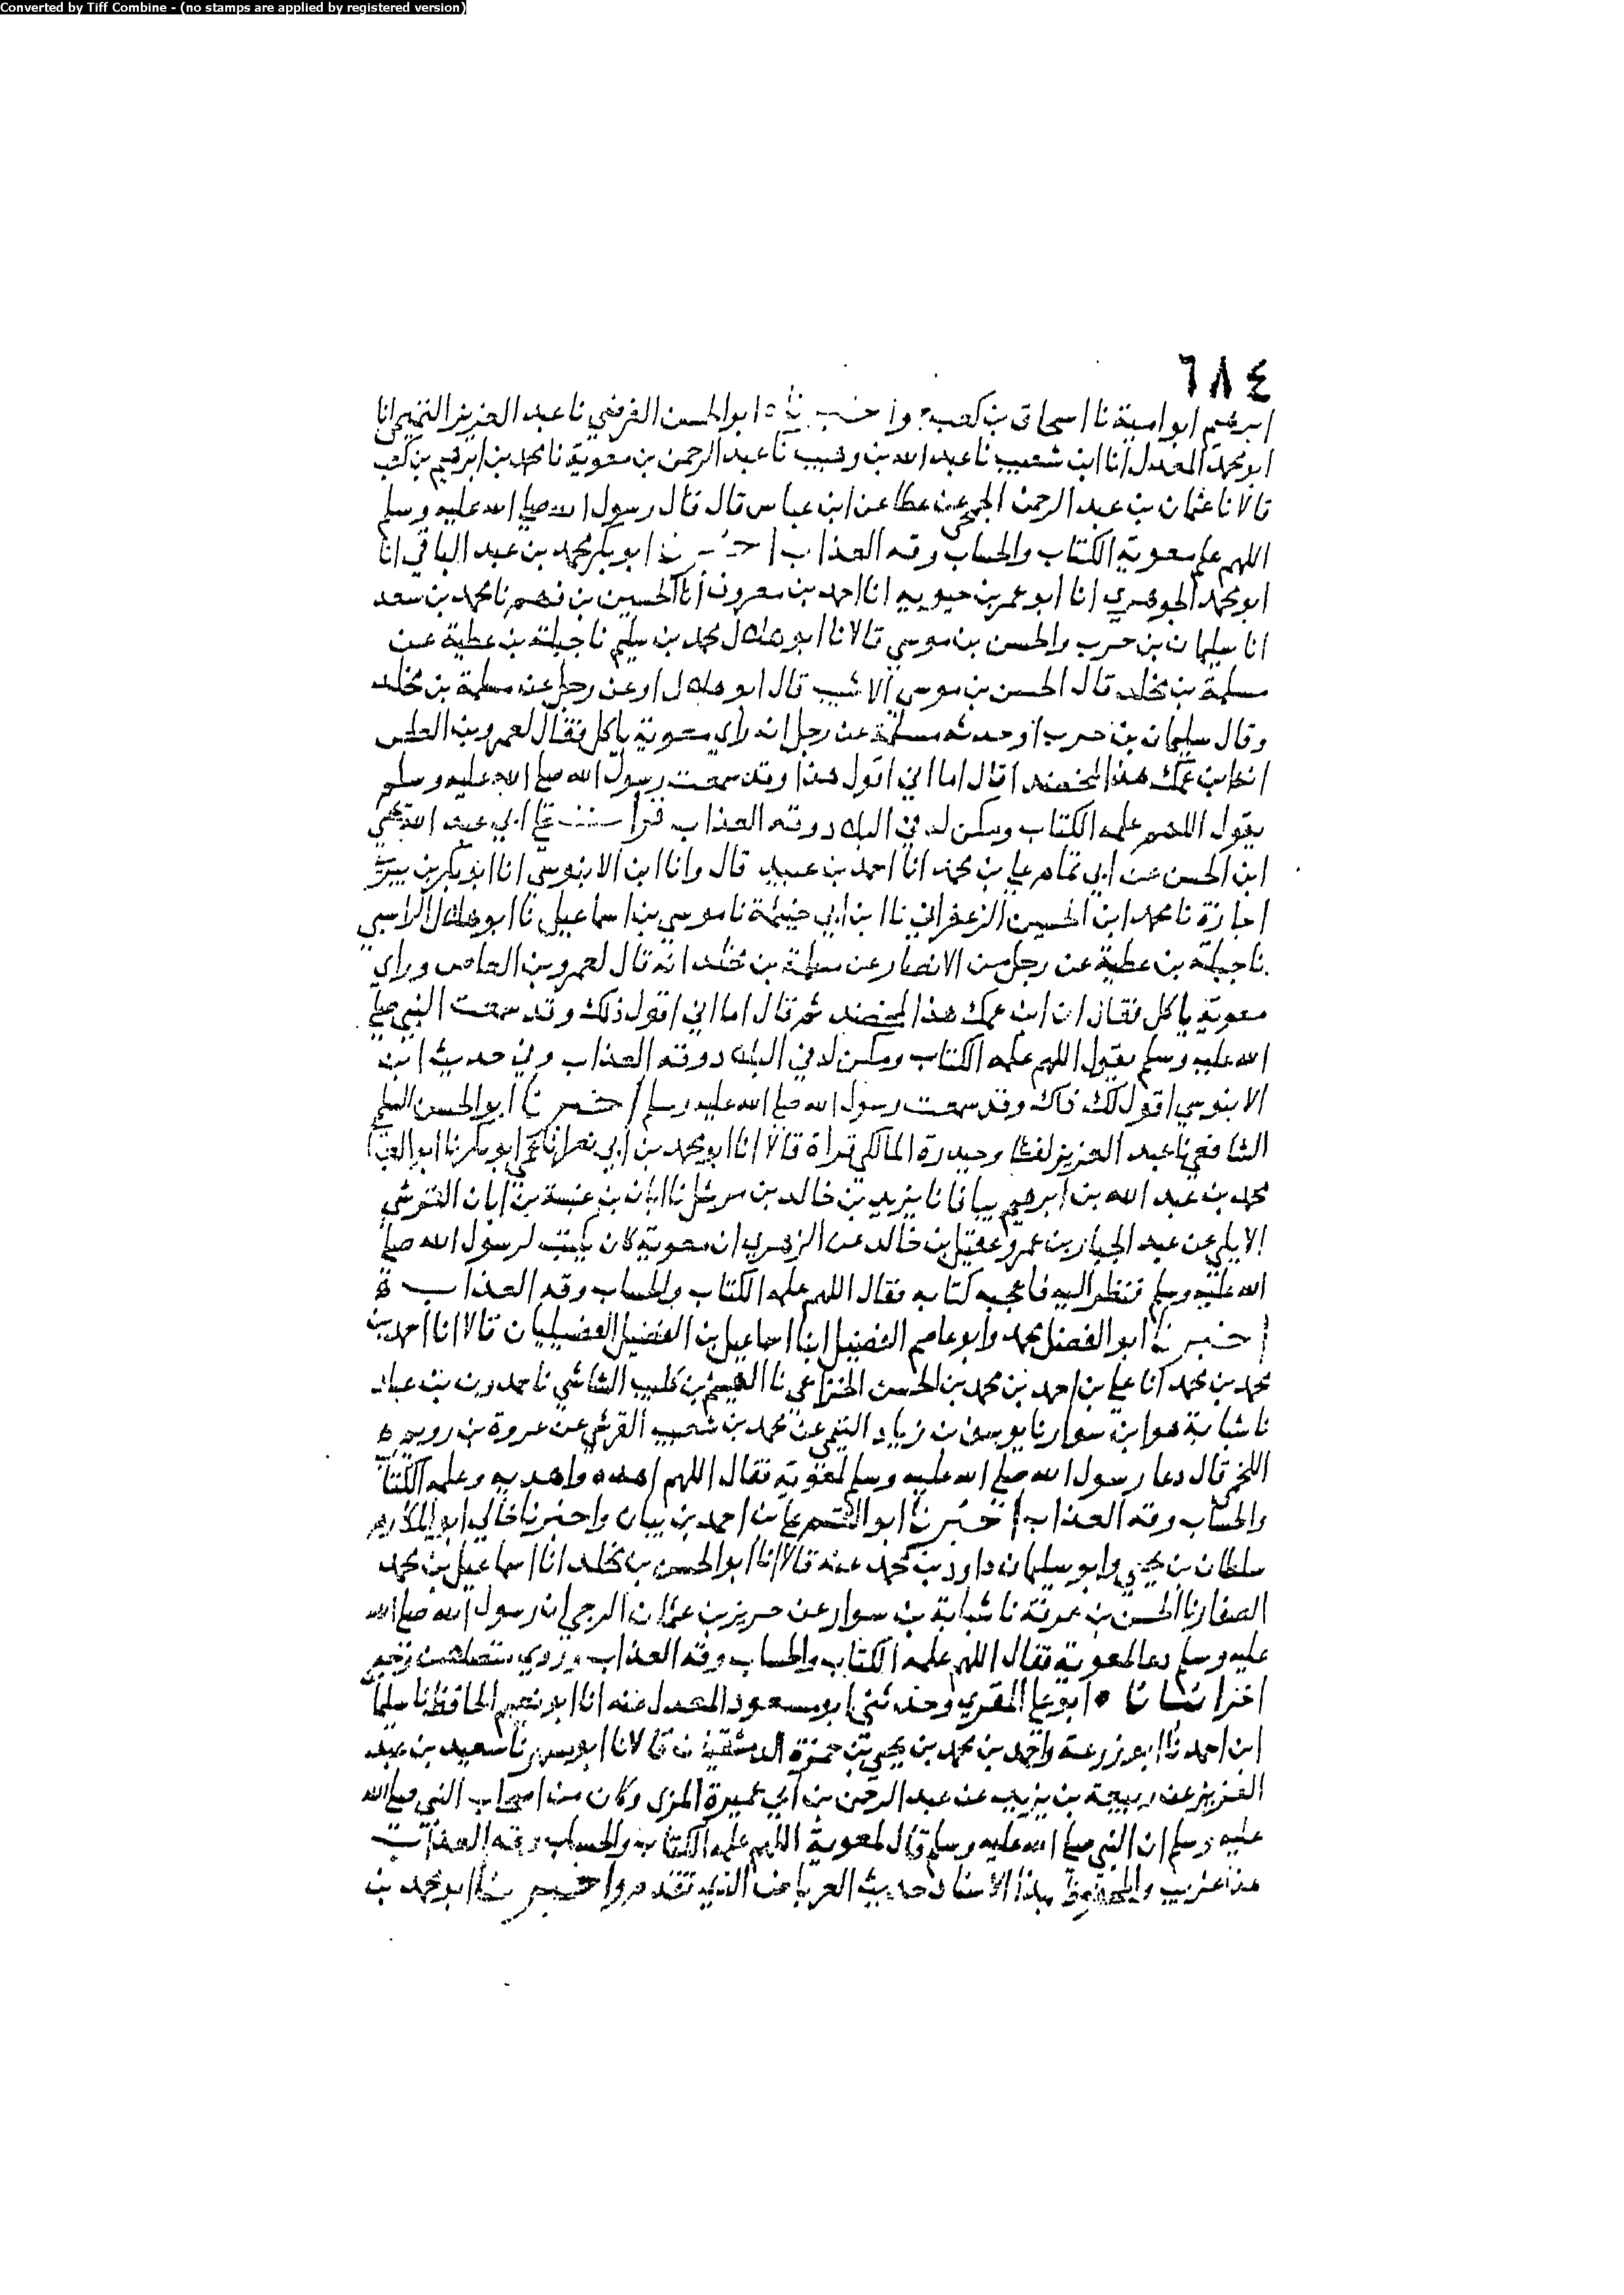 Converted by Tiff Combine - (no stamps are applied by registered version)
٦٨٤
ابرهيم ابو امية نا اسحاق بن كعب واخبرنا ابو الحسن الفرضي نا عبد العزيز التميمي انا
ابو محمد المعدل انا ابن شعيب نا عبد الله بن وهيب نا عبد الرحمن بن معوية نا محمد بن ابرهيم بن كعب
قالا نا عثمان بن عبد الرحمن الجمحي عن عطا عن ابن عباس قال قال رسول الله صلى الله عليه وسلم
اللهم علم معوية الكتاب والحساب وقه العذاب اخبرنا ابو بكر محمد بن عبد الباقي انا
ابو محمد الجوهري انا ابو عمر بن حيويه انا احمد بن معروف انا الحسين بن فهم نا محمد بن سعد
انا سليمان بن حرب والحسن بن موسي قالا نا ابو هلال محمد بن سليم نا جبلة بن عطية عن
مسلمة بن مخلد قال الحسن بن موسي الاشيب قال ابو هلال او عن رجل عن مسلمة بن مخلد
وقال سليمان بن حرب او حدثه مسلمة عن رجل انه راي معوية ياكل فقال لعمرو بن العاص
ان ابن عمك هذا لمخضد قال اما اني اقول هذا وقد سمعت رسول الله صلى الله عليه وسلم
يقول اللهم علمه الكتاب ومكن له في البلاد وقه العذاب قرات على ابي عبد الله يحيي
ابن الحسن عن ابي تمام علي بن محمد انا احمد بن عبيد قال وانا ابن الابنوسي انا ابو بكر بن بيري
اجازة نا محمد ابن الحسين الزعفراني نا ابن ابي خيثمة نا موسي بن اسماعيل نا ابو هلال الراسبي
نا جبلة بن عطية عن رجل من الانصار عن مسلمة بن مخلد انه قال لعمرو بن العاص وراي
معوية ياكل فقال ان ابن عمك هذا لمخضد ثم قال اما اني اقول ذلك وقد سمعت النبي صلى
الله عليه وسلم يقول اللهم علمه الكتاب ومكن له في البلاد وقه العذاب وفي حديث ابن
الابنوسي اقول لك ذاك وقد سمعت رسول الله صلى الله عليه وسلم اخبرنا ابو الحسن السلمي
الشافعي نا عبد العزيز لفظا وحيدرة المالكي قراة قالا انا ابو محمد بن ابي نصر انا عمي ابو بكر نا ابو
محمد بن عبد الله بن ابرهيم نا يزيد بن خالد بن مرشل نا ابان بن عنبسة بن ابان القرشي
الايلي عن عبد الجبار بن عمرو عقيل بن خالد عن الزهري ان معوية كان يكتب لرسول الله صلى
الله عليه وسلم فنظر اليه فاعجبه كتابه فقال اللهم علمه الكتاب والحساب وقه العذاب ه
اخبرنا ابو الفضل محمد وابو عاصم الفضيل ابنا اسماعيل بن الفضيل الفضيليان قالا انا احمد بن
محمد بن محمد انا علي بن احمد بن محمد بن الحسن الخزاعي نا الهيثم بن كليب الشاشي نا حمدون بن عباد
نا شبابة هو ابن سوار نا يوسف بن زياد التيمي عن محمد بن شعيب القرشي عن عروة بن رويم
اللخمي قال دعا رسول الله صلى الله عليه وسلم لمعوية فقال اللهم اهده واهد به وعلمه الكتاب
والحساب وقه العذاب اخبرنا ابو القسم علي بن احمد بن بيان واخبرنا خالي ابو المكارم
سلطان بن يحيي وابو سليمان داود بن محمد عنه قالا انا ابو الحسن بن مخلد انا اسماعيل بن محمد
الصفار نا الحسن بن عرفة نا شبابة بن سوار عن حريز بن عثمان الرحبي ان رسول الله صلى الله
عليه وسلم دعا لمعوية فقال اللهم علمه الكتاب والحساب وقه العذاب وروي
ابو علي المقري وحدثني ابو مسعود المعدل عنه انا ابو نعيم الحافظ نا سليمان
ابن احمد نا ابو زرعة واحمد بن محمد بن يحيي بن حمزة الدمشقيان قالا نا ابو مسهر نا سعيد بن عبد
العزيز عن ربيعة بن يزيد عن عبد الرحمن بن ابي عميرة المزي وكان من اصحاب النبي صلى الله
عليه وسلم ان النبي صلى الله عليه وسلم قال لمعوية اللهم علمه الكتاب والحساب وقه العذاب
هذا غريب والمحفوظ بهذا الاسناد حديث العرباض الذي تقدم واخبرنا ابو محمد بن